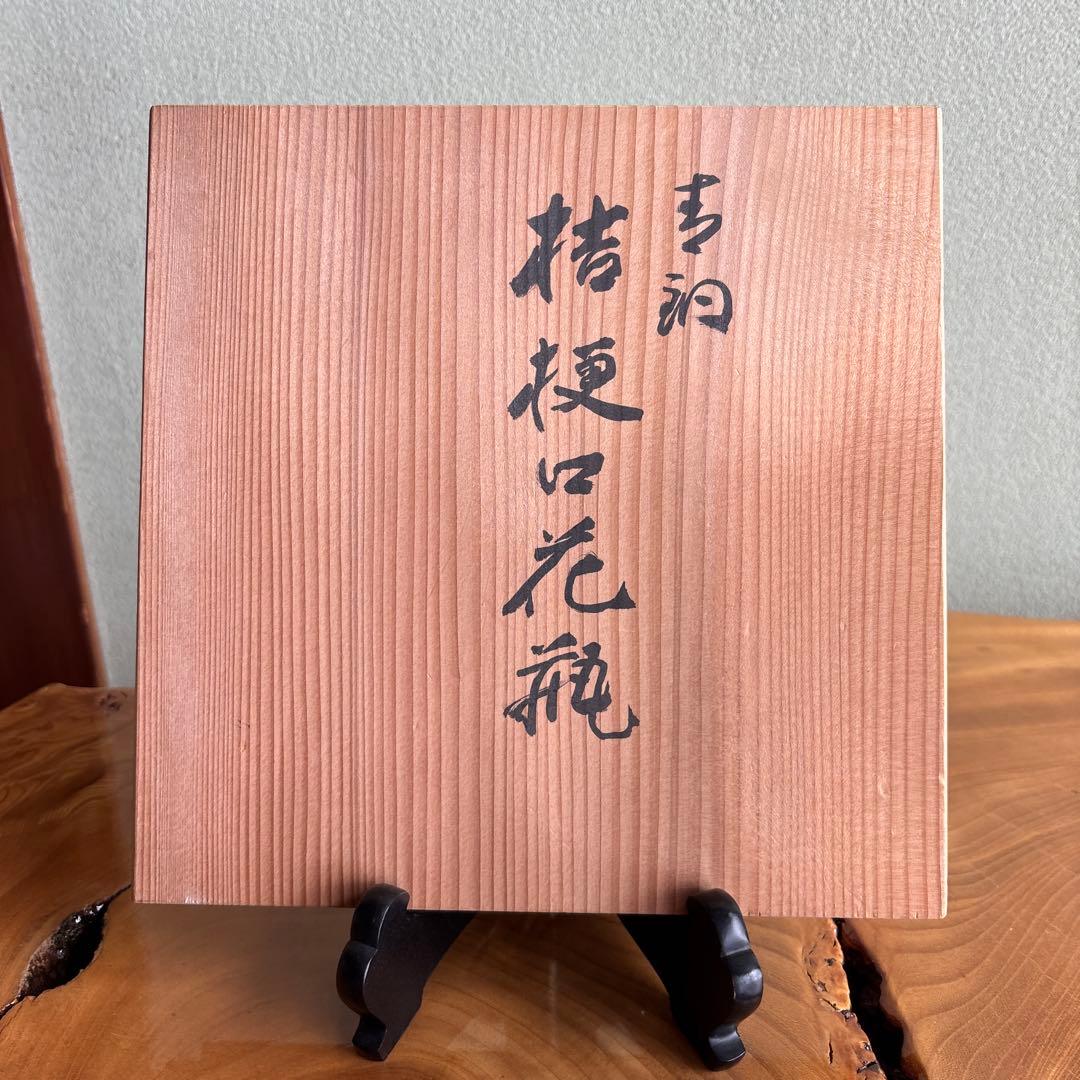 青銅
桔梗口花瓶